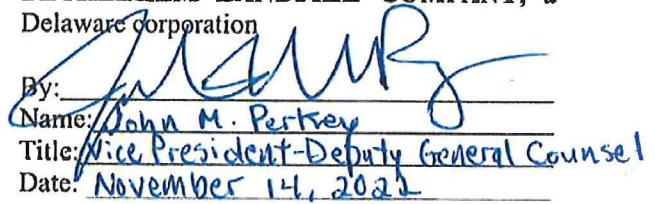 Delaware corporation
By:
Name: John M. Perkey
Title: Vice President-Deputy General Counsel
Date: November 14, 2022